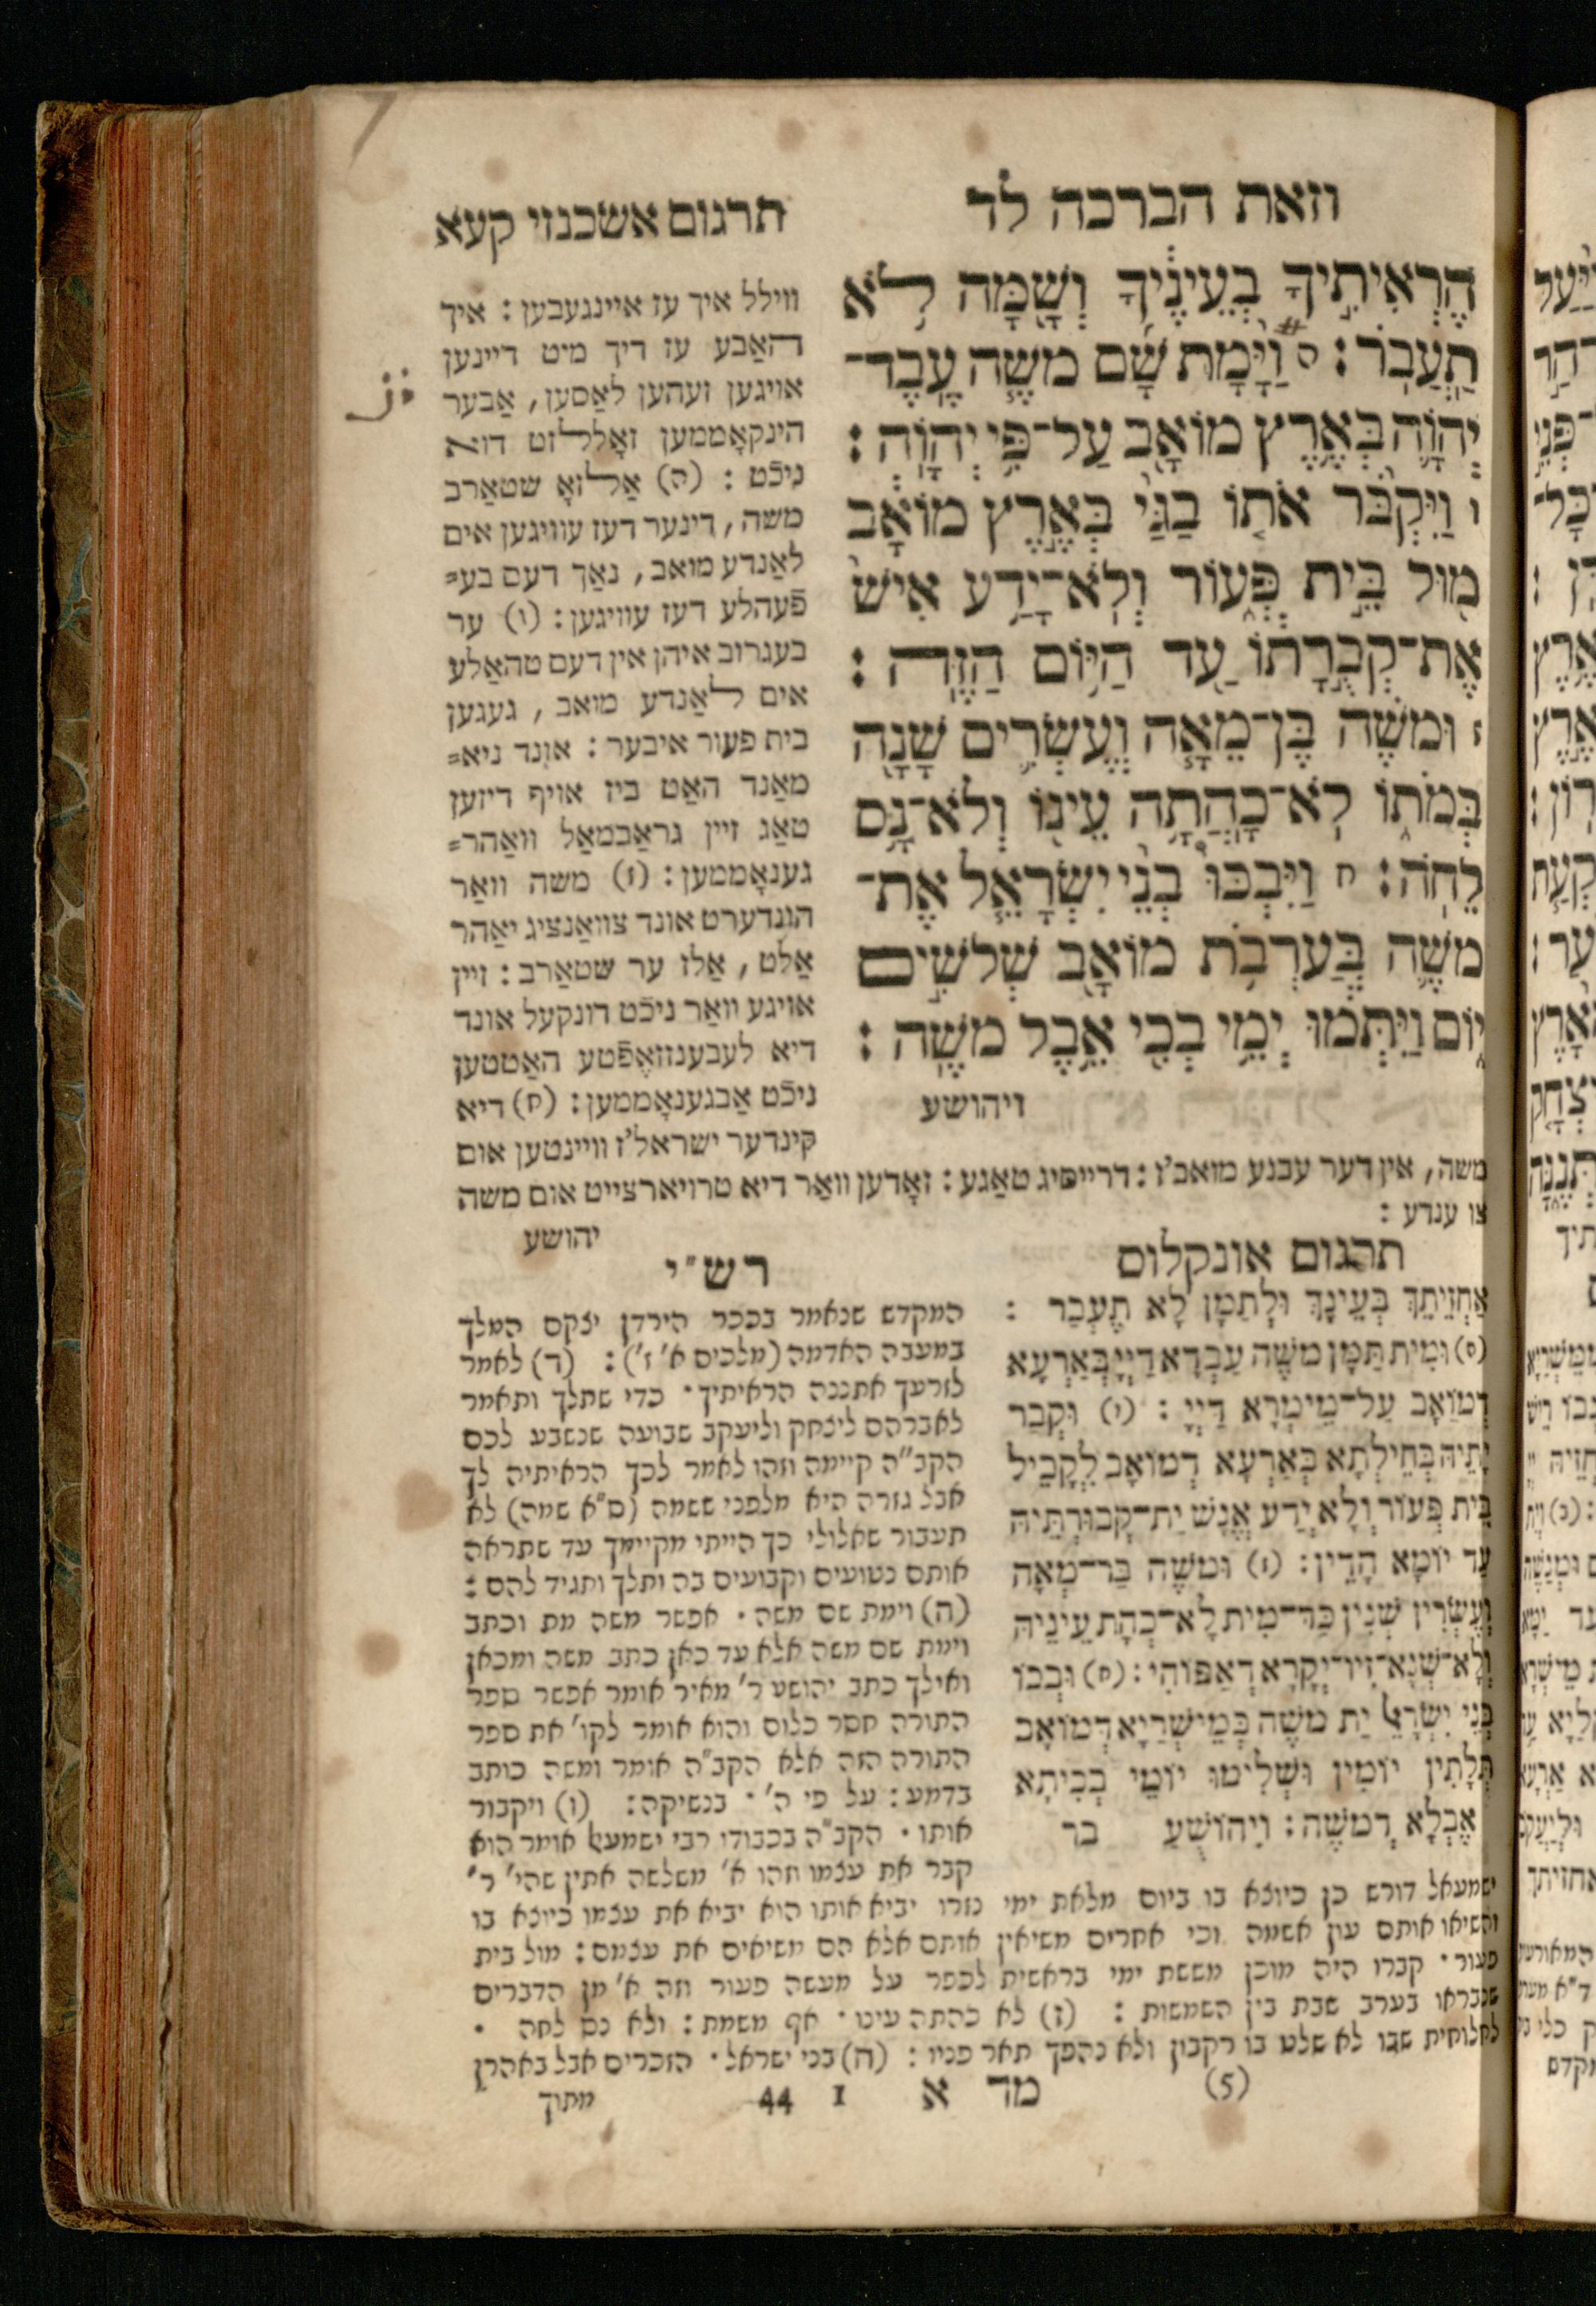 וזאת הברכה לד
תרגום אשכנזי קעא
הֶרְאִיתִ֣יךָ בְעֵינֶ֔יךָ וְשָׁ֖מָּה לֹ֥א
תַעֲבֹֽר׃ ה וַיָּ֨מָת שָׁ֜ם מֹשֶׁ֧ה עֶֽבֶד־
יְהוָ֛ה בְּאֶ֥רֶץ מוֹאָ֖ב עַל־פִּ֥י יְהוָֽה׃
ו וַיִּקְבֹּ֨ר אֹת֤וֹ בַגַּי֙ בְּאֶ֣רֶץ מוֹאָ֔ב
מ֖וּל בֵּ֣ית פְּע֑וֹר וְלֹֽא־יָדַ֥ע אִישׁ֙
אֶת־קְבֻ֣רָת֔וֹ עַ֖ד הַיּ֥וֹם הַזֶּֽה׃
ז וּמֹשֶׁ֗ה בֶּן־מֵאָ֧ה וְעֶשְׂרִ֛ים שָׁנָ֖ה
בְּמֹת֑וֹ לֹֽא־כָהֲתָ֥ה עֵינ֖וֹ וְלֹא־נָ֥ס
לֵחֹֽה׃ ח וַיִּבְכּוּ֩ בְנֵ֨י יִשְׂרָאֵ֧ל אֶת־
מֹשֶׁ֛ה בְּעַרְבֹ֥ת מוֹאָ֖ב שְׁלֹשִׁ֣ים
י֑וֹם וַֽיִּתְּמ֔וּ יְמֵ֥י בְכִ֖י אֵ֥בֶל מֹשֶֽׁה׃
ויהושע
ווילל איך עז איינגעבען: איך
האַבע עז דיך מיט דיינען
אויגען זעהען לאַסען, אַבער
הינקאָממען זאָללזט דוא
ניכֿט: (ה) אַלזאָ שטאַרב
משה, דינער דעז עוויגען אים
לאַנדע מואב, נאַך דעם בע=
פֿעהלע דעז עוויגען: (ו) ער
בעגרוב איהן אין דעם טהאַלע
אים לאַנדע מואב, געגען
בית פעור איבער: אונד ניא=
מאַנד האַט ביז אויף דיזען
טאַג זיין גראַבמאַל וואַהר=
גענאָממען: (ז) משה וואַר
הונדערט אונד צוואַנציג יאַהר
אַלט, אַלז ער שטאַרב: זיין
אויגע וואַר ניכֿט דונקעל אונד
דיא לעבענזזאֶפֿטע האַטטען
ניכֿט אַבגענאָממען: (ח) דיא
קינדער ישראל'ז וויינטען אום
משה, אין דער עבנע מואב'ז: דרייסיג טאַגע: זאָדען וואַר דיא טרויארצייט אום משה
צו ענדע:
יהושע
תרגום אונקלוס
אַחְזֵיתָךְ בְּעֵינָךְ וּלְתַמָּן לָא תֶעְבַּר:
(ה) וּמִית תַּמָּן מֹשֶׁה עַבְדָּא דַיְיָ בְּאַרְעָא
דְמוֹאָב עַל־מֵימְרָא דַיְיָ: (ו) וּקְבַר
יָתֵיהּ בְּחֵילְתָא בְּאַרְעָא דְמוֹאָב לָקֳבֵיל
בֵּית פְּעוֹר וְלָא יְדַע אֱנָשׁ יַת־קְבוּרְתֵּיהּ
עַד יוֹמָא הָדֵין: (ז) וּמֹשֶׁה בַּר־מְאָה
וְעֶשְׂרִין שְׁנִין כַּד־מִית לָא־כְהָת עֵינֵיהּ
וְלָא־שְׁנָא־זִיו־יְקָרָא דְאַפּוֹהִי: (ח) וּבְכוֹ
בְּנֵי יִשְׂרָאֵל יַת מֹשֶׁה בְּמֵישְׁרַיָא דְמוֹאָב
תְּלָתִין יוֹמִין וּשְׁלִימוּ יוֹמֵי בְכִיתָא
אֶבְלָא דְמֹשֶׁה: וִיהוֹשֻׁעַ בר
רש"י
המקדש שנאמר בככר הירדן יצקם המלך
במעבה האדמה (מלכים א' ז'): (ד) לאמר
לזרעך אתננה הראיתיך · כדי שתלך ותאמר
לאברהם ליצחק וליעקב שבועה שנשבע לכם
הקב"ה קיימה וזהו לאמר לכך הראיתיה לך
אבל גזרה היא מלפני ששמה (ס"א שמה) לא
תעבור שאלולי כך הייתי מקיימך עד שתראה
אותם נטועים וקבועים בה ותלך ותגיד להם:
(ה) וימת שם משה · אפשר משה מת וכתב
וימת שם משה אלא עד כאן כתב משה ומכאן
ואילך כתב יהושע ר' מאיר אומר אפשר ספר
התורה חסר כלום והוא אומר לקו' את ספר
התורה הזה אלא הקב"ה אומר ומשה כותב
בדמע: על פי ה' · בנשיקה: (ו) ויקבור
אותו · הקב"ה בכבודו רבי ישמעאל אומר הוא
קבר את עצמו וזהו א' משלשה אתין שהי' ר'
ישמעאל דורש כן כיוצא בו ביום מלאת ימי נזרו יביא אותו הוא יביא את עצמו כיוצא בו
והשיאו אותם עון אשמה וכי אחרים משיאין אותם אלא הם משיאים את עצמם: מול בית
פעור · קברו היה מוכן מששת ימי בראשית לכפר על מעשה פעור וזה א' מן הדברים
שנבראו בערב שבת בין השמשות: (ז) לא כהתה עינו · אף משמת: ולא נס לחה ·
לחלוחית שבו לא שלט בו רקבון ולא נהפך תאר פניו: (ח) בני ישראל · הזכרים אבל באהרן
(5) מד א 1 44 מתוך